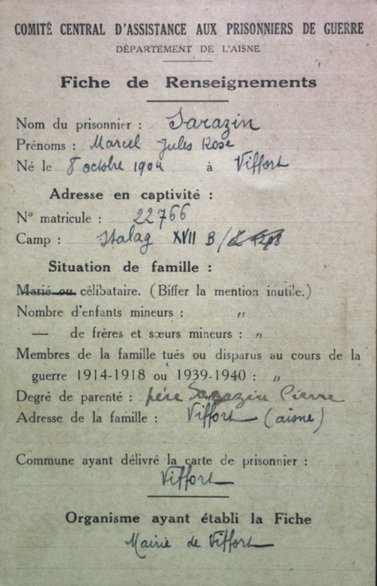 COMITÉ CENTRAL D'ASSISTANCE AUX PRISONNIERS DE GUERRE
DÉPARTEMENT DE L'AISNE
Fiche de Renseignements
Nom du prisonnier : Sarazin
Prénoms : Marcel Jules Rose
Né le 8 octobre 1904 à Viffort
Adresse en captivité :
N° matricule : 22766
Camp : Stalag XVII B /
Situation de famille :
Marié ou célibataire. (Biffer la mention inutile.)
Nombre d'enfants mineurs : "
— de frères et sœurs mineurs : "
Membres de la famille tués ou disparus au cours de la
guerre 1914-1918 ou 1939-1940 : "
Degré de parenté : père Sarazin Pierre
Adresse de la famille : Viffort (aisne)
Commune ayant délivré la carte de prisonnier :
Viffort
Organisme ayant établi la Fiche
Mairie de Viffort